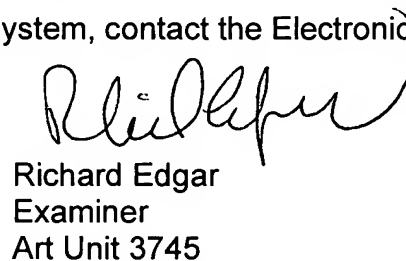 ystem, contact the Electronic
Richard Edgar
Examiner
Art Unit 3745